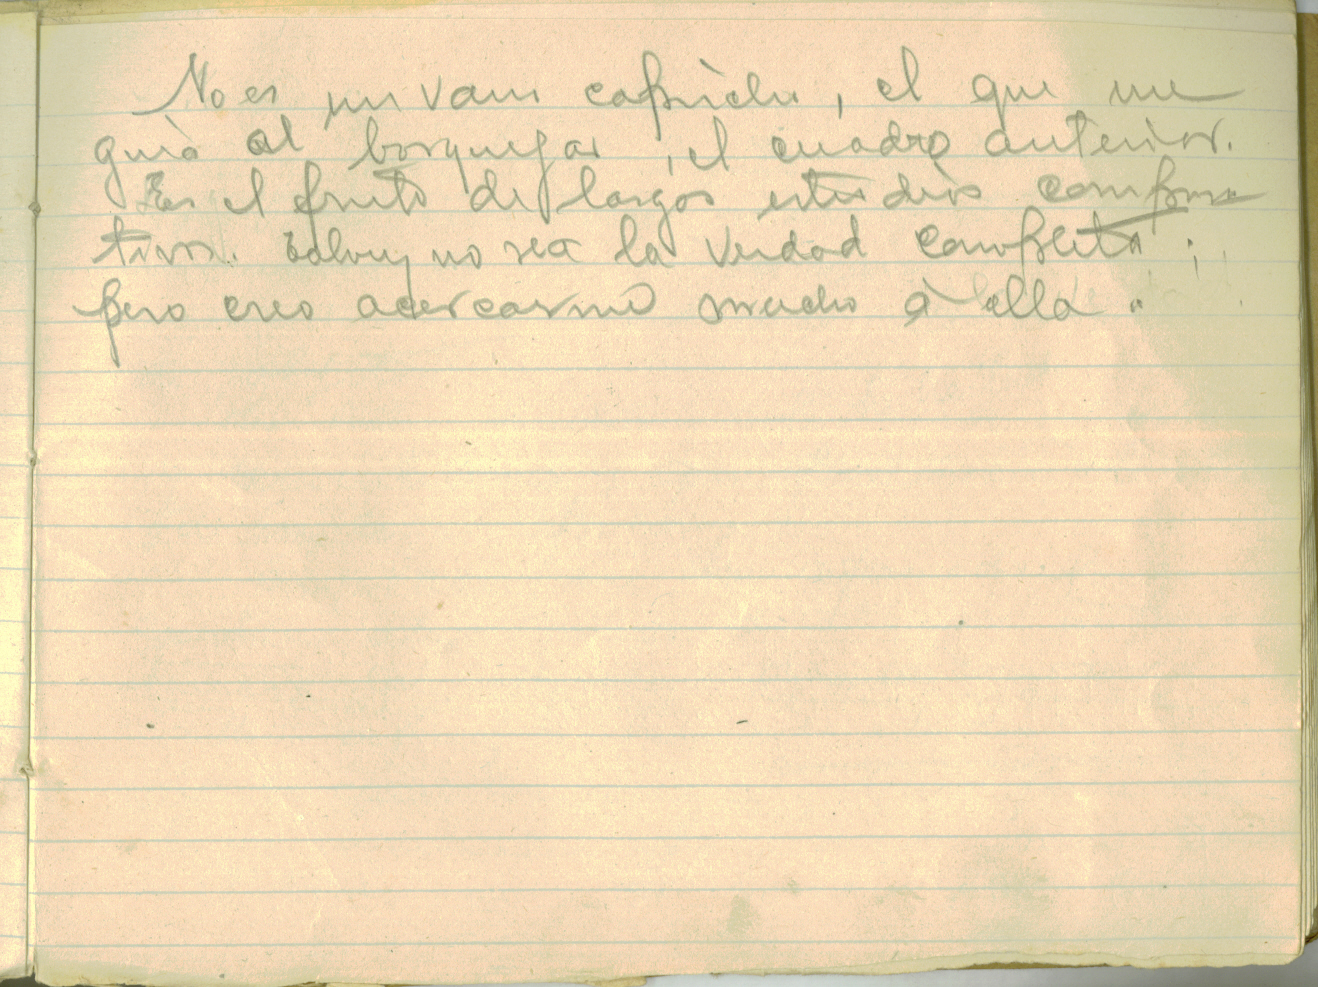 No es un vano capricho, el que me
guió al bosquejar, el cuadro anterior.
Es el fruto de largos estudios compara
tivos. no sea la verdad completa;
pero creo acercarme mucho à ella.